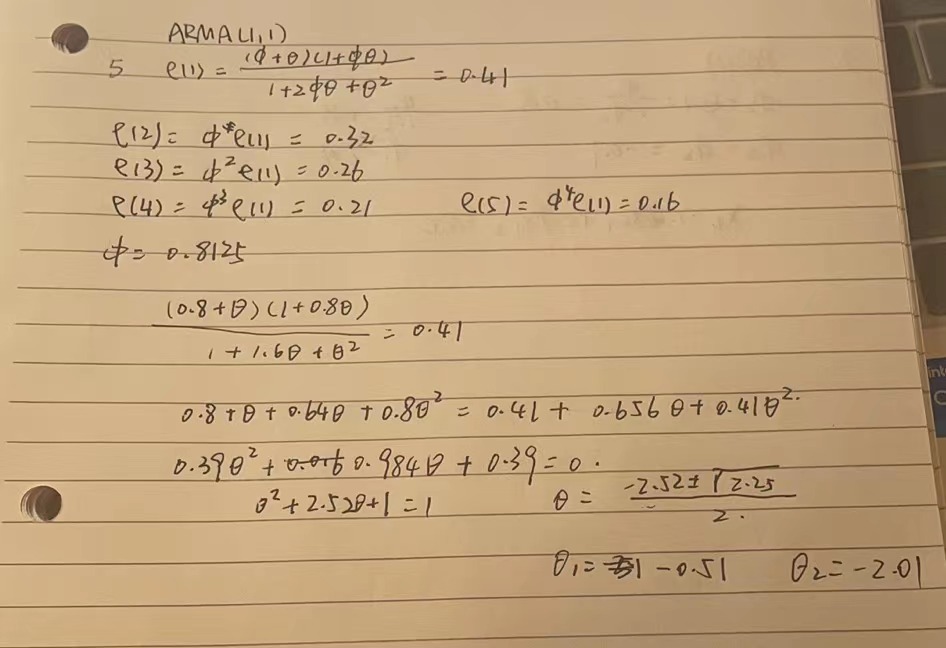 ARMA(1,1)
5 ρ(1) = (ϕ+θ)(1+ϕθ) / 1+2ϕθ+θ² = 0.41
ρ(2) = ϕ*ρ(1) = 0.32
ρ(3) = ϕ²ρ(1) = 0.26
ρ(4) = ϕ³ρ(1) = 0.21 ρ(5) = ϕ⁴ρ(1) = 0.16
ϕ = 0.8125
(0.8+θ)(1+0.8θ) / 1+1.6θ+θ² = 0.41
0.8+θ+0.64θ+0.8θ² = 0.41+0.656θ+0.41θ².
0.39θ²+0.984θ+0.39=0.
θ²+2.52θ+1=1 θ = -2.52±√2.25 / 2.
θ₁= -0.51 θ₂=-2.01